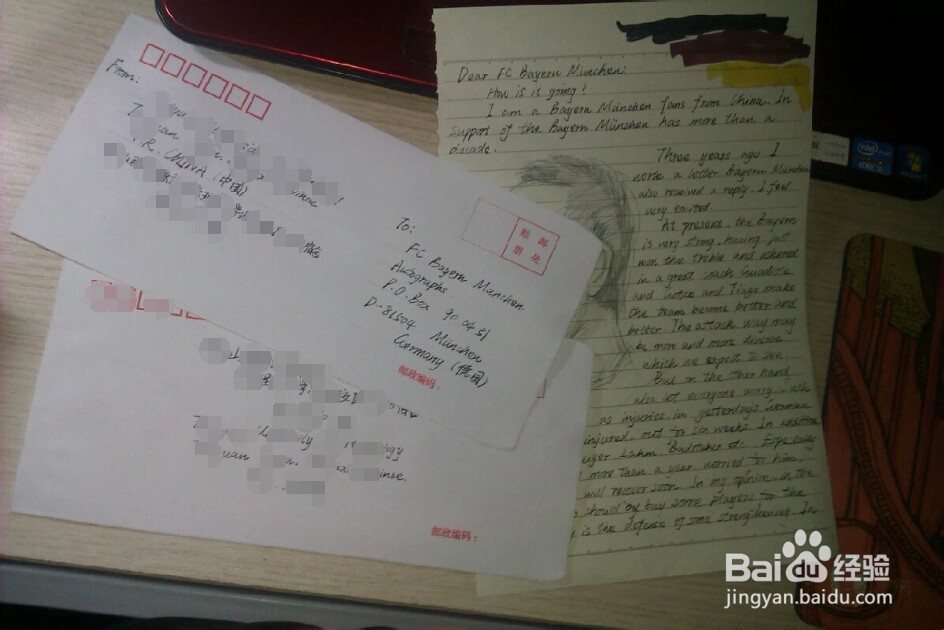 From:
R. CHINA (中国)
To:
FC Bayern München
Autographs
P.O. Box 90 04 51
D-81504 München
Germany (德国)
邮政编码:
贴 邮
票 处
邮政编码:
Dear FC Bayern München:
How is it going!
I am a Bayern München fans from China. In
support of the Bayern München has more than a
decade.
Three years ago I
wrote a letter Bayern München
also received a reply. I feel
very excited.
At present, the Bayern
is very strong, having just
won the treble and ushered
in a great coach Guardiola
and Gotze and Tiago make
the team become better and
better. The attack way may
be more and more diverse
which we expect to see.
But on the other hand,
also let everyone worry, such
as injuries, in yesterday's German
injured, out for six weeks. In
Lahm, Badstuber etc. Especially
more than a year, worried for him,
will recover soon. In my opinion, in the
should buy some players for the
is the defense of some strengthening. In
intel
Bai du 经验
jingyan.baidu.com